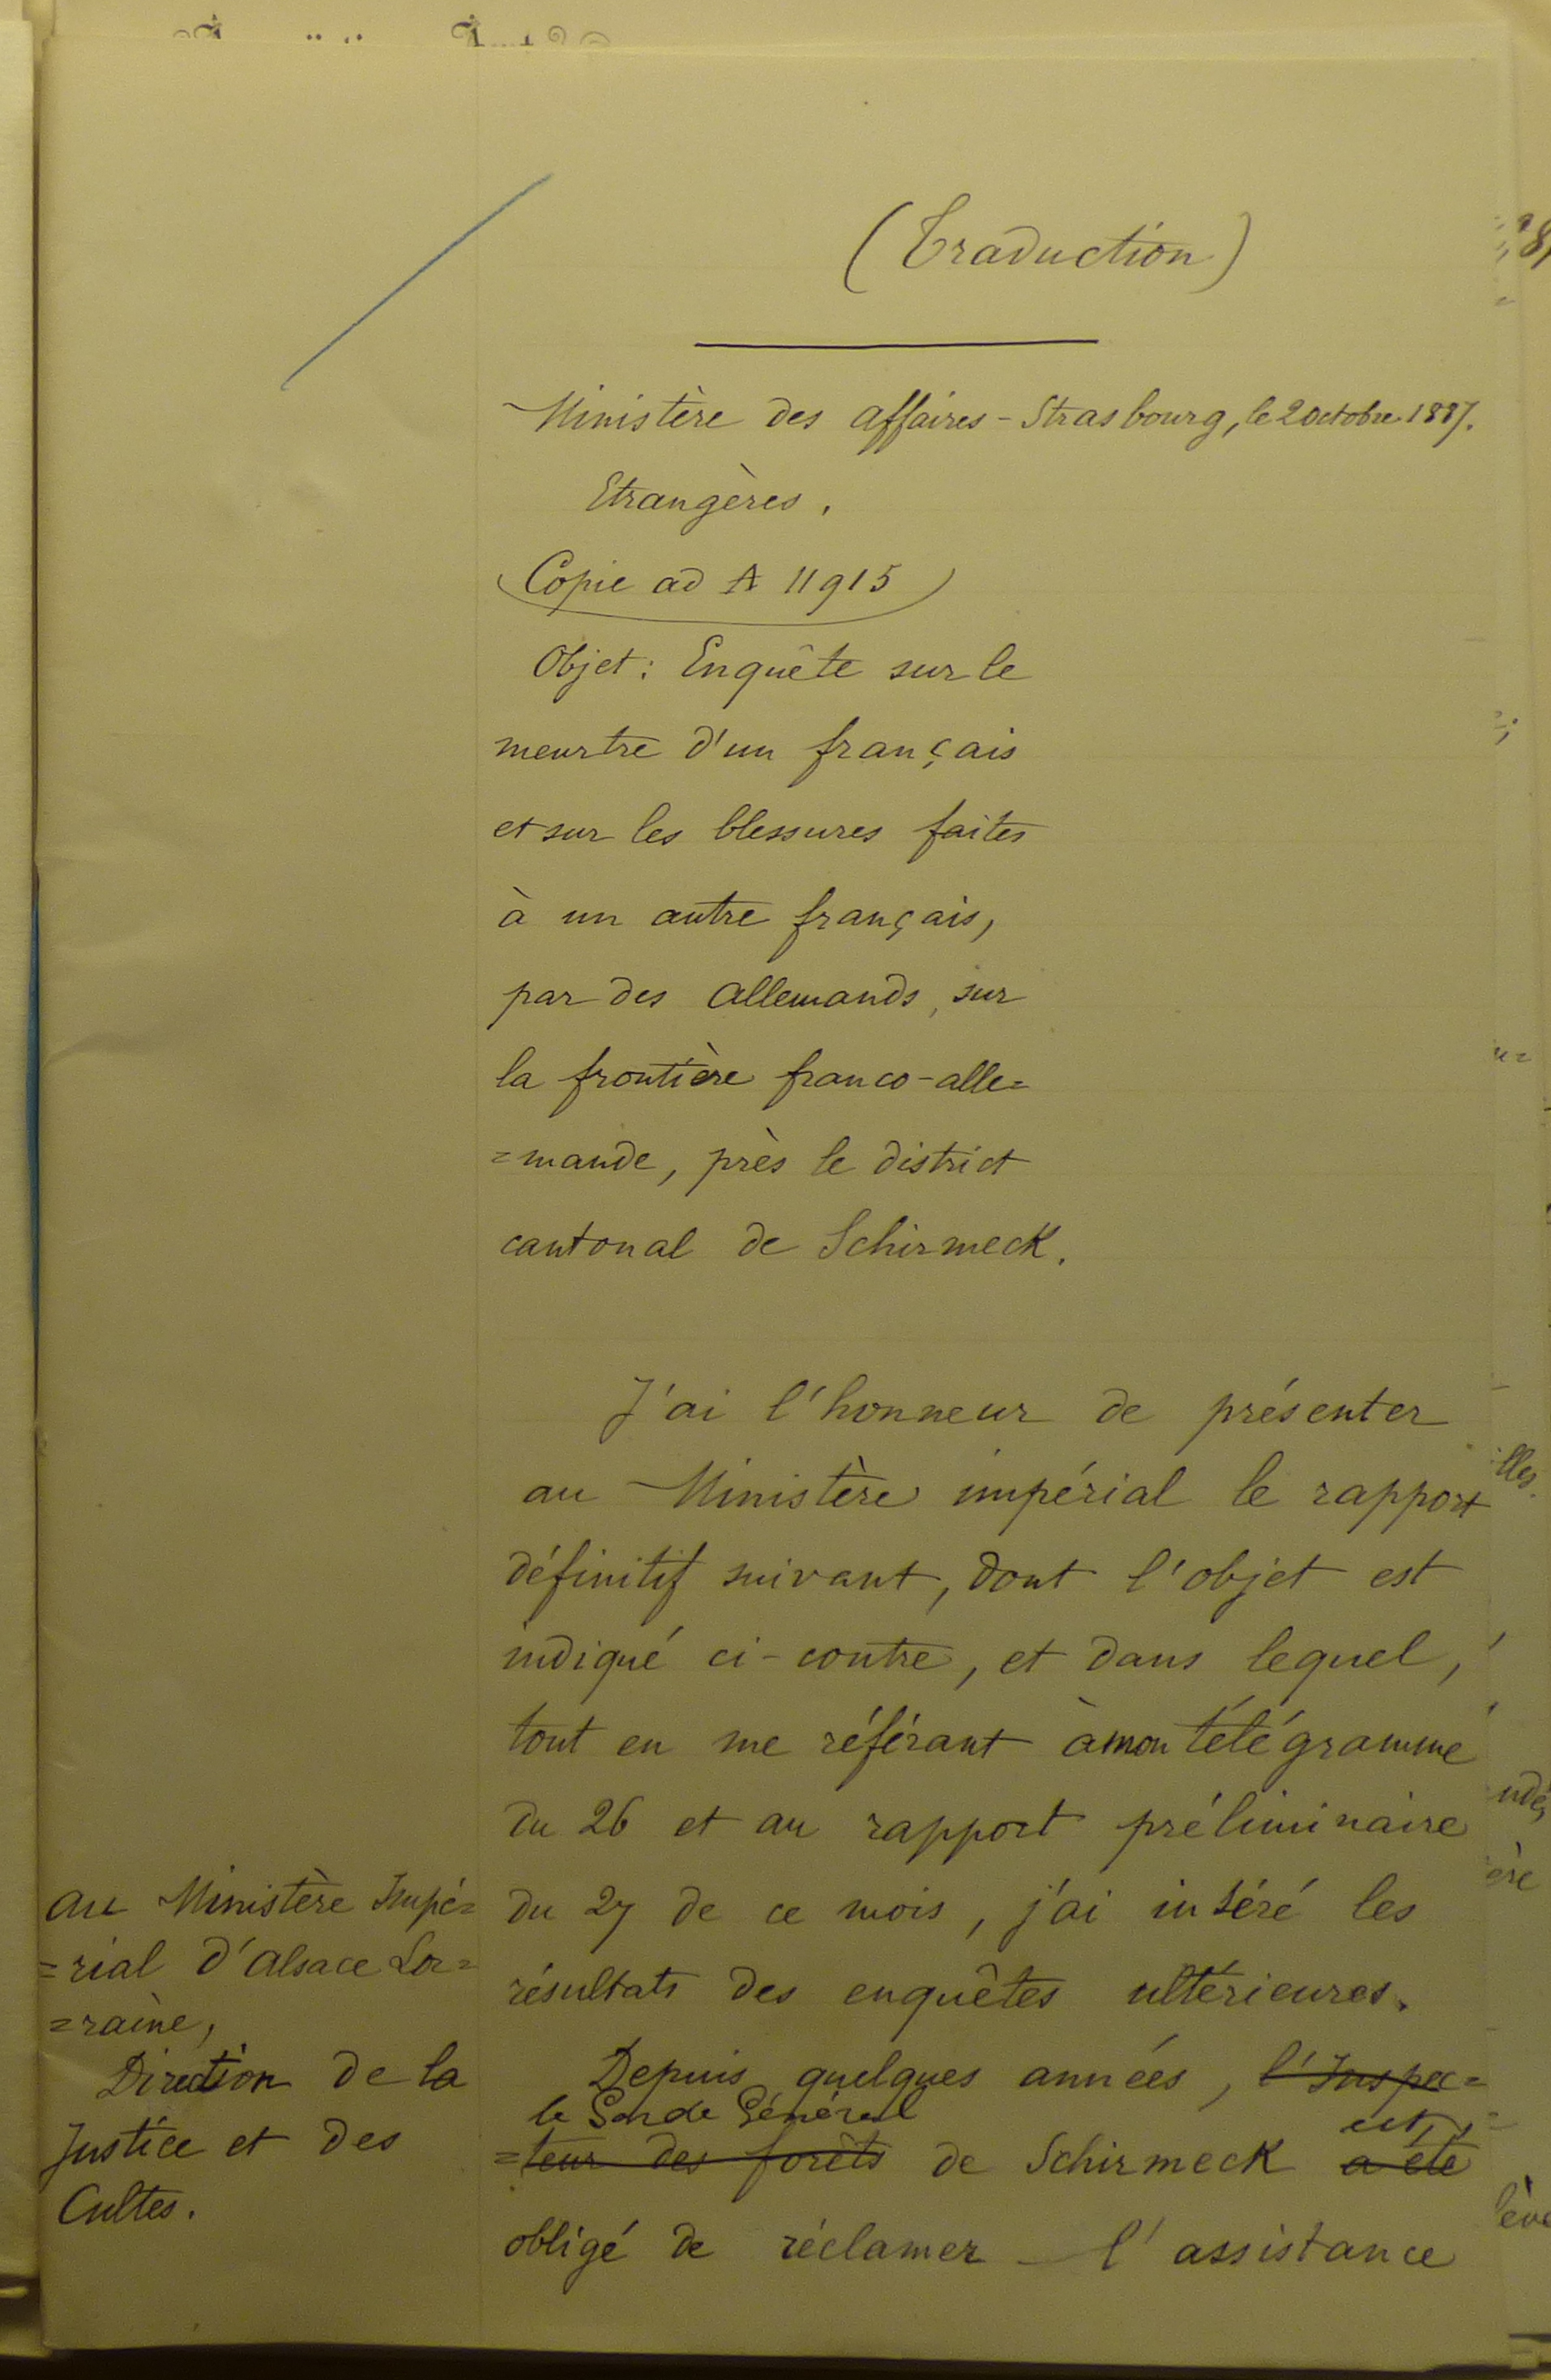 (Traduction)
Ministère des affaires - Strasbourg, le 2 octobre 1887.
Etrangères.
Copie ad A 11915
Objet : Enquête sur le
meurtre d'un français
et sur les blessures faites
à un autre français,
par des allemands, sur
la frontière franco-alle=
=mande, près le district
cantonal de Schirmeck.
J'ai l'honneur de présenter
au Ministère impérial le rapport
définitif suivant, dont l'objet est
indiqué ci-contre, et dans lequel,
tout en me référant à mon télégramme
du 26 et au rapport préliminaire
du 27 de ce mois, j'ai inséré les
résultats des enquêtes ultérieures.
Depuis quelques années, l'Inspec=
le Garde Général est
=teur des forêts de Schirmeck a été
obligé de réclamer l'assistance
au Ministère Impé=
=rial d'Alsace Lor=
=raine,
Direction de la
Justice et des
Cultes.